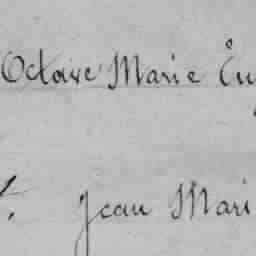 Octave Marie Eu
Jean Mari